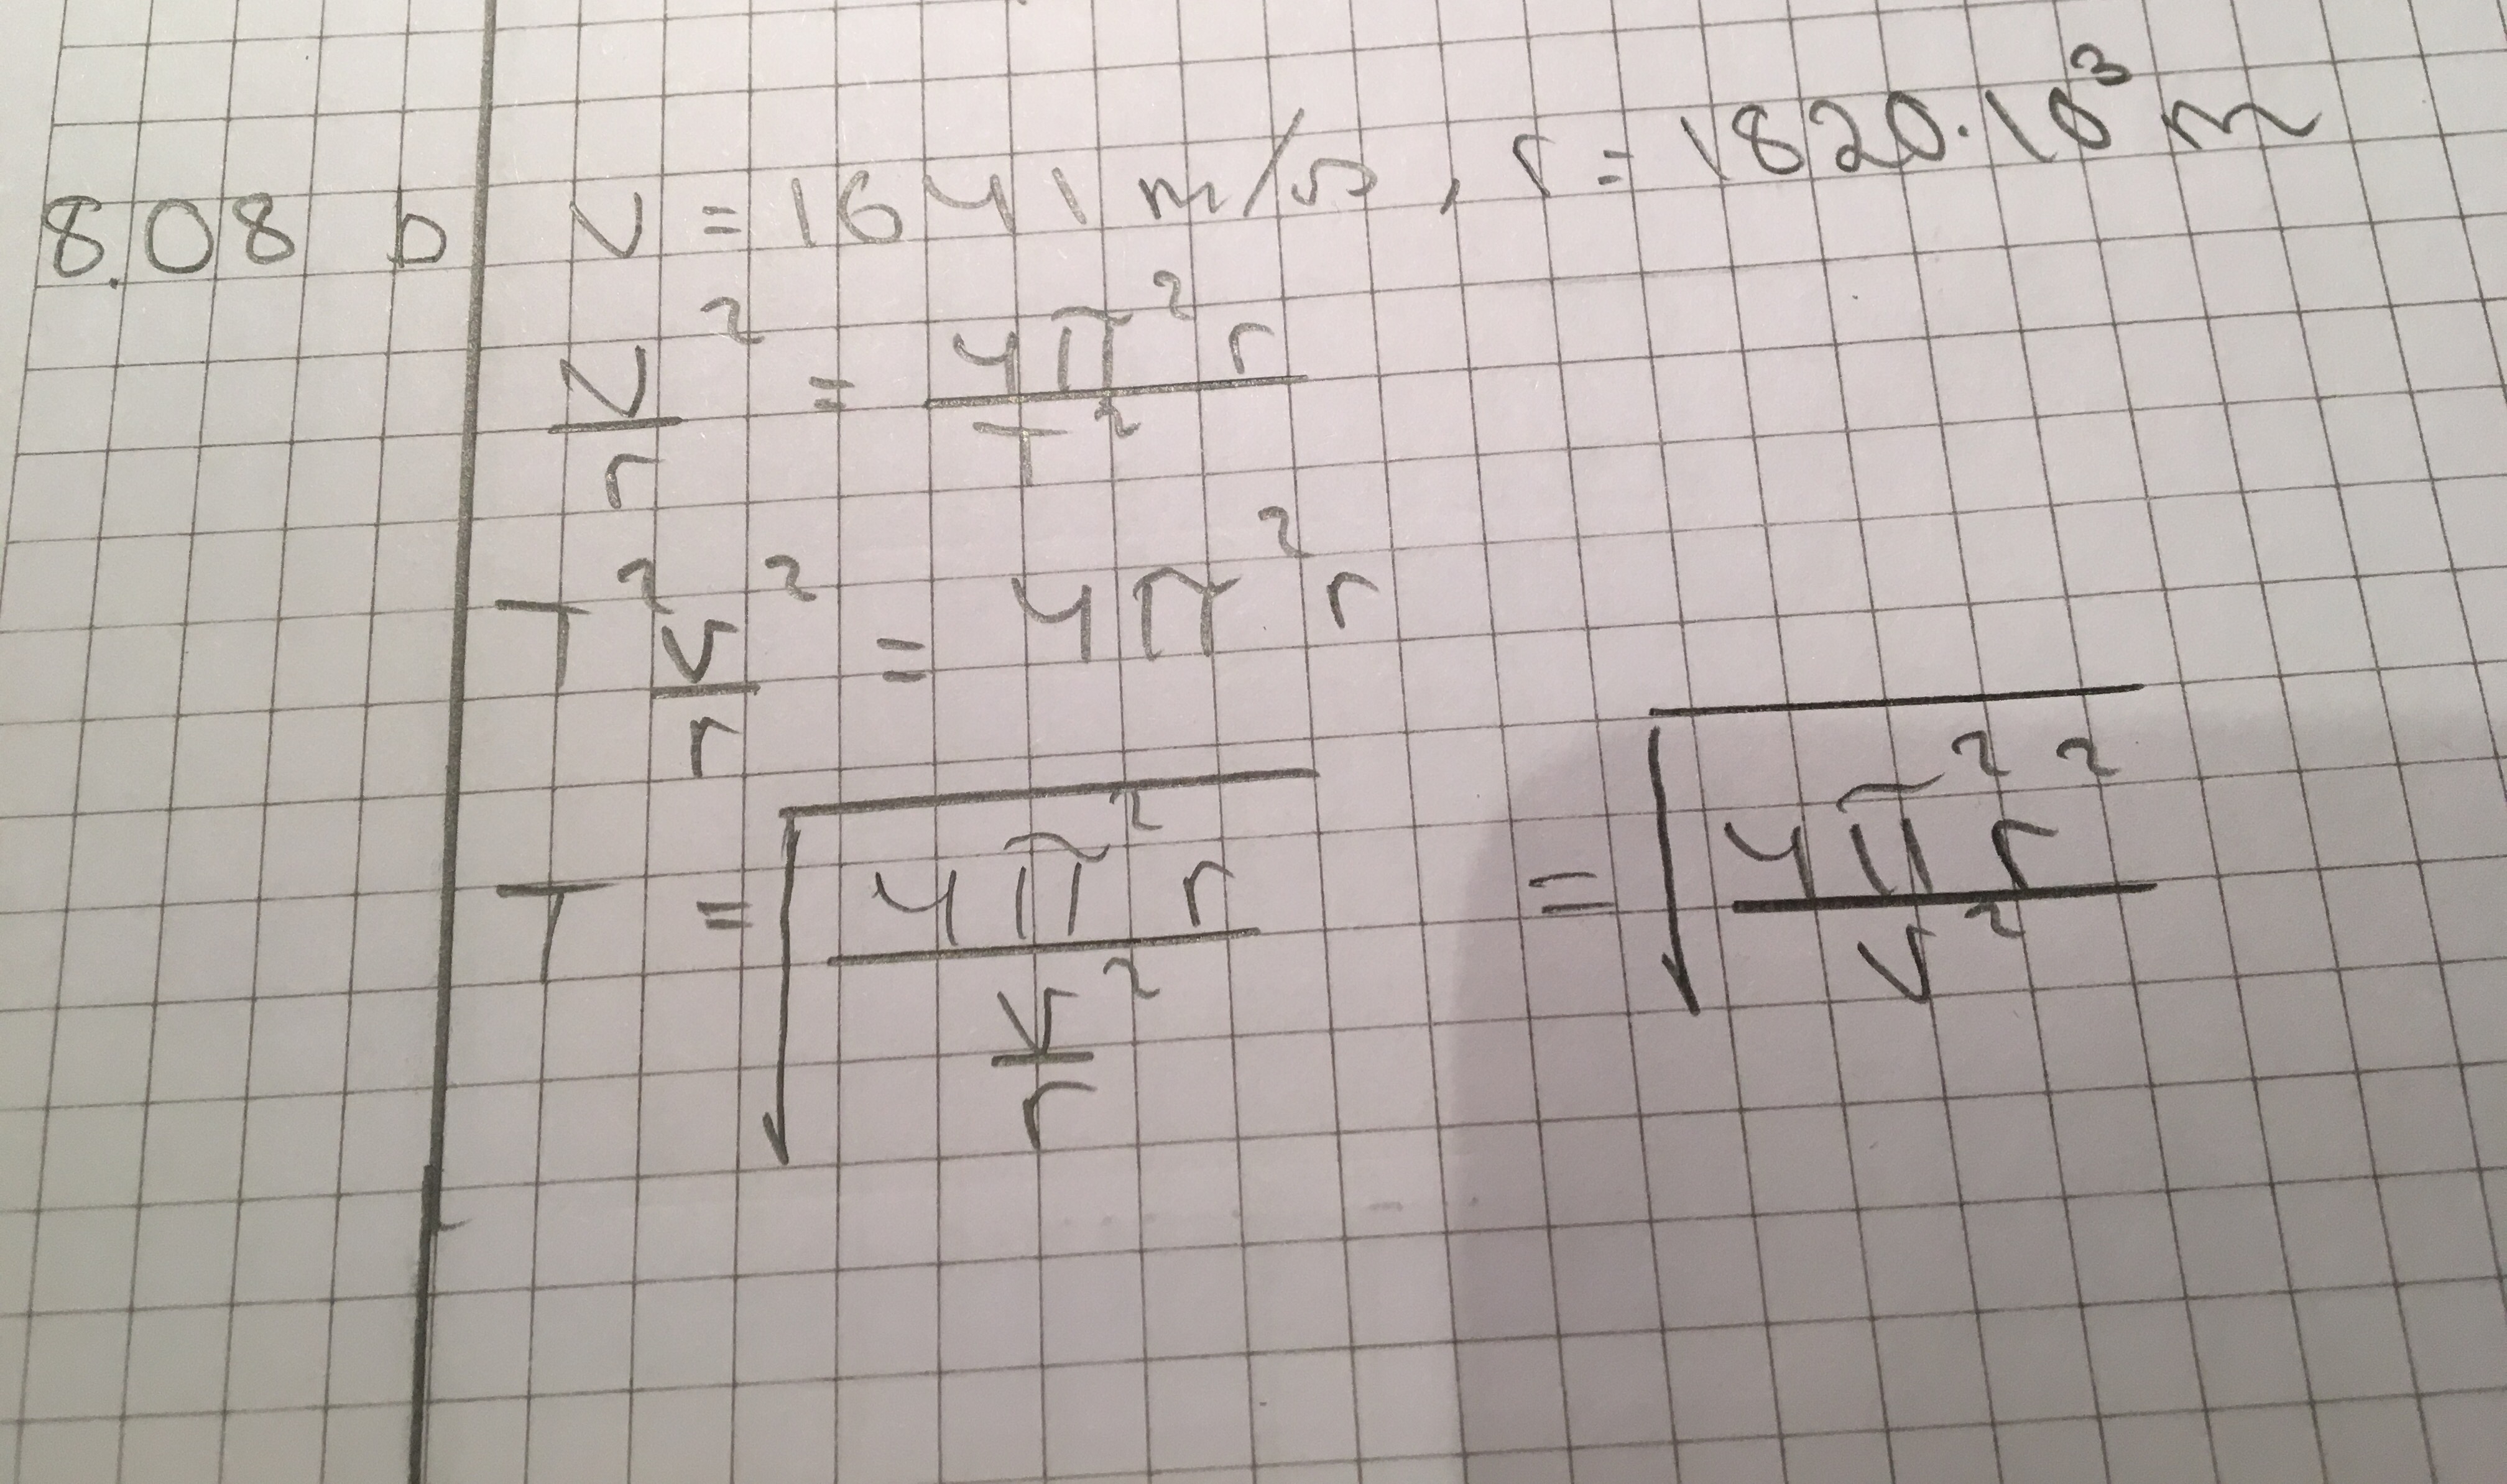 8.08 b v = 1641 m/s, r = 1820·10³ m
v²/r = 4π²r/T²
T² v²/r = 4π²r
T = √(4π²r/(v²/r)) = √(4π²r²/v²)